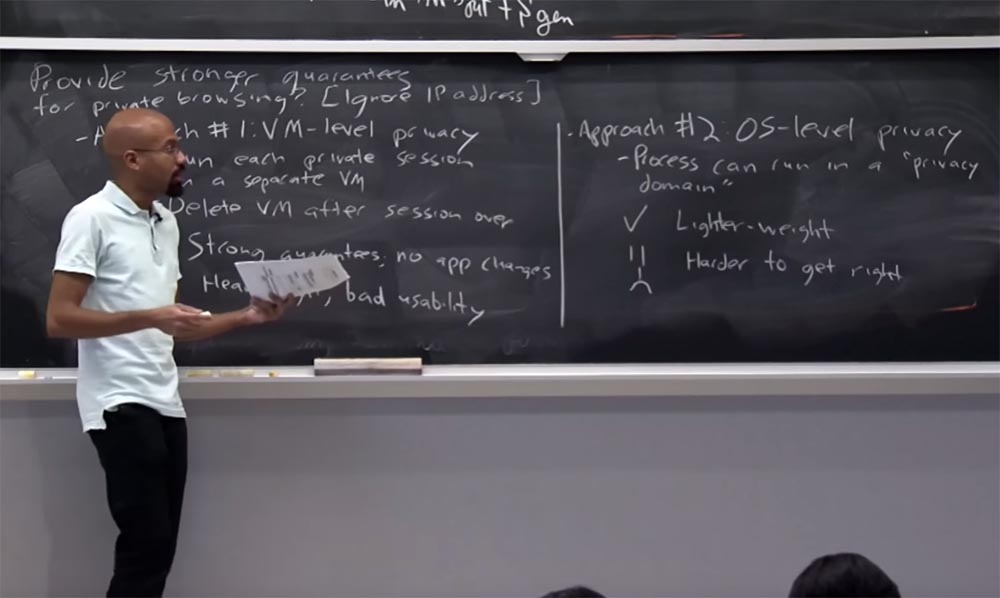 gen
Provide stronger guarantees
for private browsing? [Ignore IP address]
- #1: VM-level privacy
each private session
a separate VM
Delete VM after session over
Strong guarantees; no app changes
bad usability
- Approach #2: OS-level privacy
- Process can run in a "privacy
domain"
✓ Lighter-weight
Harder to get right